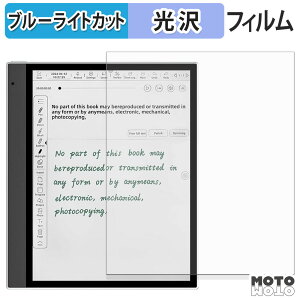 ブルーライトカット 光沢 フィルム
No part of this book may bereproduced or transmitted in
any form or by anymeans, electronic, mechanical,
photocopying.
No part of this book may
bereproduced or transmitted in
any form or by anymeans,
electronic, mechanical,
photocopying.
MOTO
MOTO